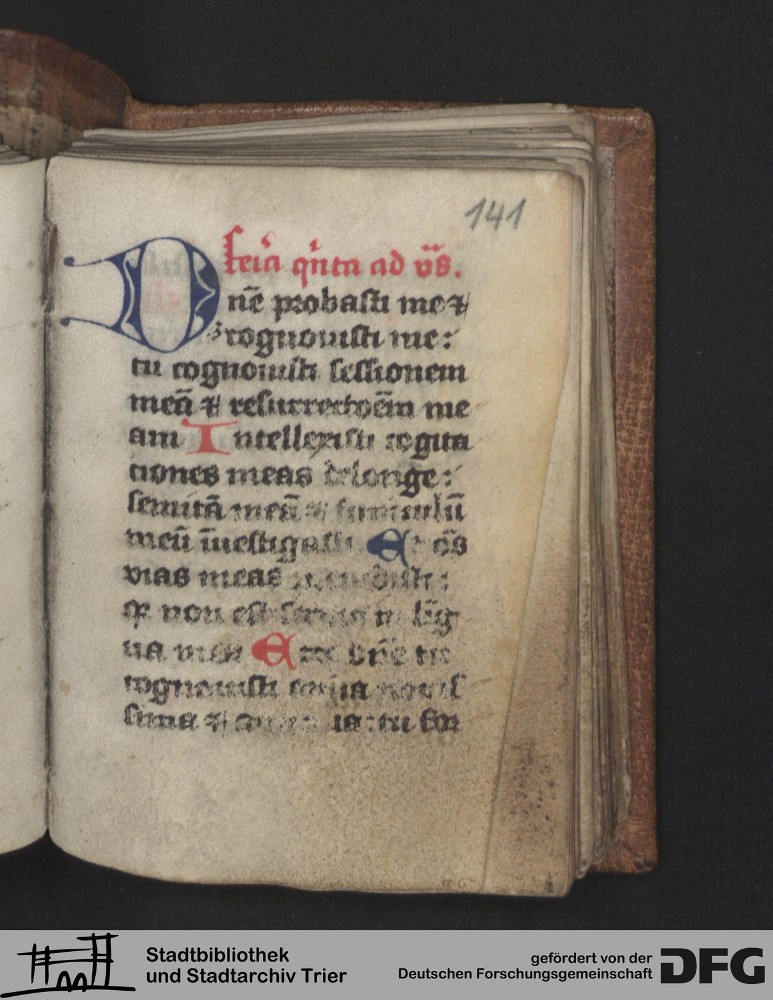 141
feia qͥnta ad vs̄.
Dnē probasti me ⁊
cognouisti me:
tu cognouisti sessionem
meā ⁊ resurrectōem me
am Intellexisti cogita
tiones meas delonge:
semitā meā ⁊ funiculū
meū īuestigasti Et oēs
vias meas
non est sermo in līg
ua mea Ecce dn̄e tu
cognouisti omnia nouis
sima ⁊ antiqua: tu for
Stadtbibliothek
und Stadtarchiv Trier
gefördert von der
Deutschen Forschungsgemeinschaft
DFG